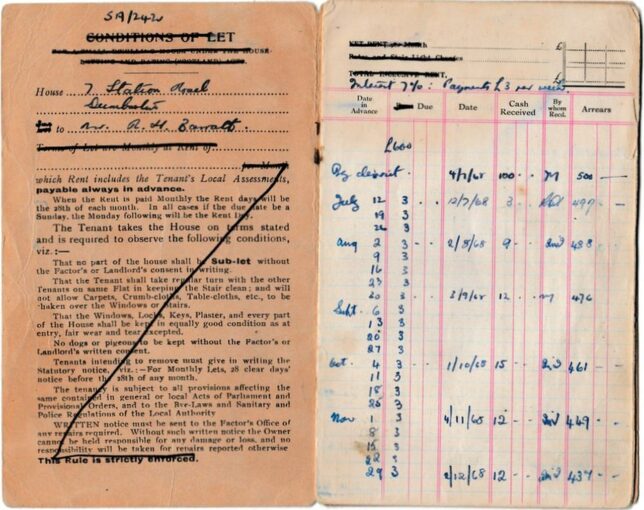 SA/242
CONDITIONS OF LET
House 7 Station Road
Dumbarton
to Mr. R. H. Barratt
Terms of Let are Monthly at Rent of
per Month
which Rent includes the Tenant's Local Assessments,
payable always in advance.
When the Rent is paid Monthly the Rent days will be
the 28th of each month. In all cases if the due date be a
Sunday, the Monday following will be the Rent Day.
The Tenant takes the House on terms stated
and is required to observe the following conditions,
viz.:—
That no part of the house shall be Sub-let without
the Factor's or Landlord's consent in writing.
That the Tenant shall take regular turn with the other
Tenants on same Flat in keeping the Stair clean; and will
not allow Carpets, Crumb-cloths, Table-cloths, etc., to be
shaken over the Windows or Stairs.
That the Windows, Locks, Keys, Plaster, and every part
of the House shall be kept in equally good condition as at
entry, fair wear and tear excepted.
No dogs or pigeons to be kept without the Factor's or
Landlord's written consent.
Tenants intending to remove must give in writing the
Statutory notice, viz.:—For Monthly Lets, 28 clear days'
notice before the 28th of any month.
The tenancy is subject to all provisions affecting the
same contained in general or local Acts of Parliament and
Provisional Orders, and to the Bye-Laws and Sanitary and
Police Regulations of the Local Authority
WRITTEN notice must be sent to the Factor's Office of
any repairs required. Without such written notice the Owner
cannot be held responsible for any damage or loss, and no
responsibility will be taken for repairs reported otherwise
This Rule is strictly enforced.
NET RENT per Month £
Rates and Stair Light Charges
TOTAL INCLUSIVE RENT, £
Interest 7%: Payments £3 per week.
Date in Advance Due Date Cash Received By whom Recd. Arrears
£600
By deposit 4/7/68 100 500
July 12 3 12/7/68 3 497
19 3
26 3
Aug 2 3 2/8/68 9 488
9 3
16 3
23 3
30 3 3/9/68 12 476
Sept. 6 3
13 3
20 3
27 3
Oct 4 3 1/10/68 15 461
11 3
18 3
25 3
Nov 1 3 4/11/68 12 449
8 3
15 3
22 3
29 3 2/12/68 12 437